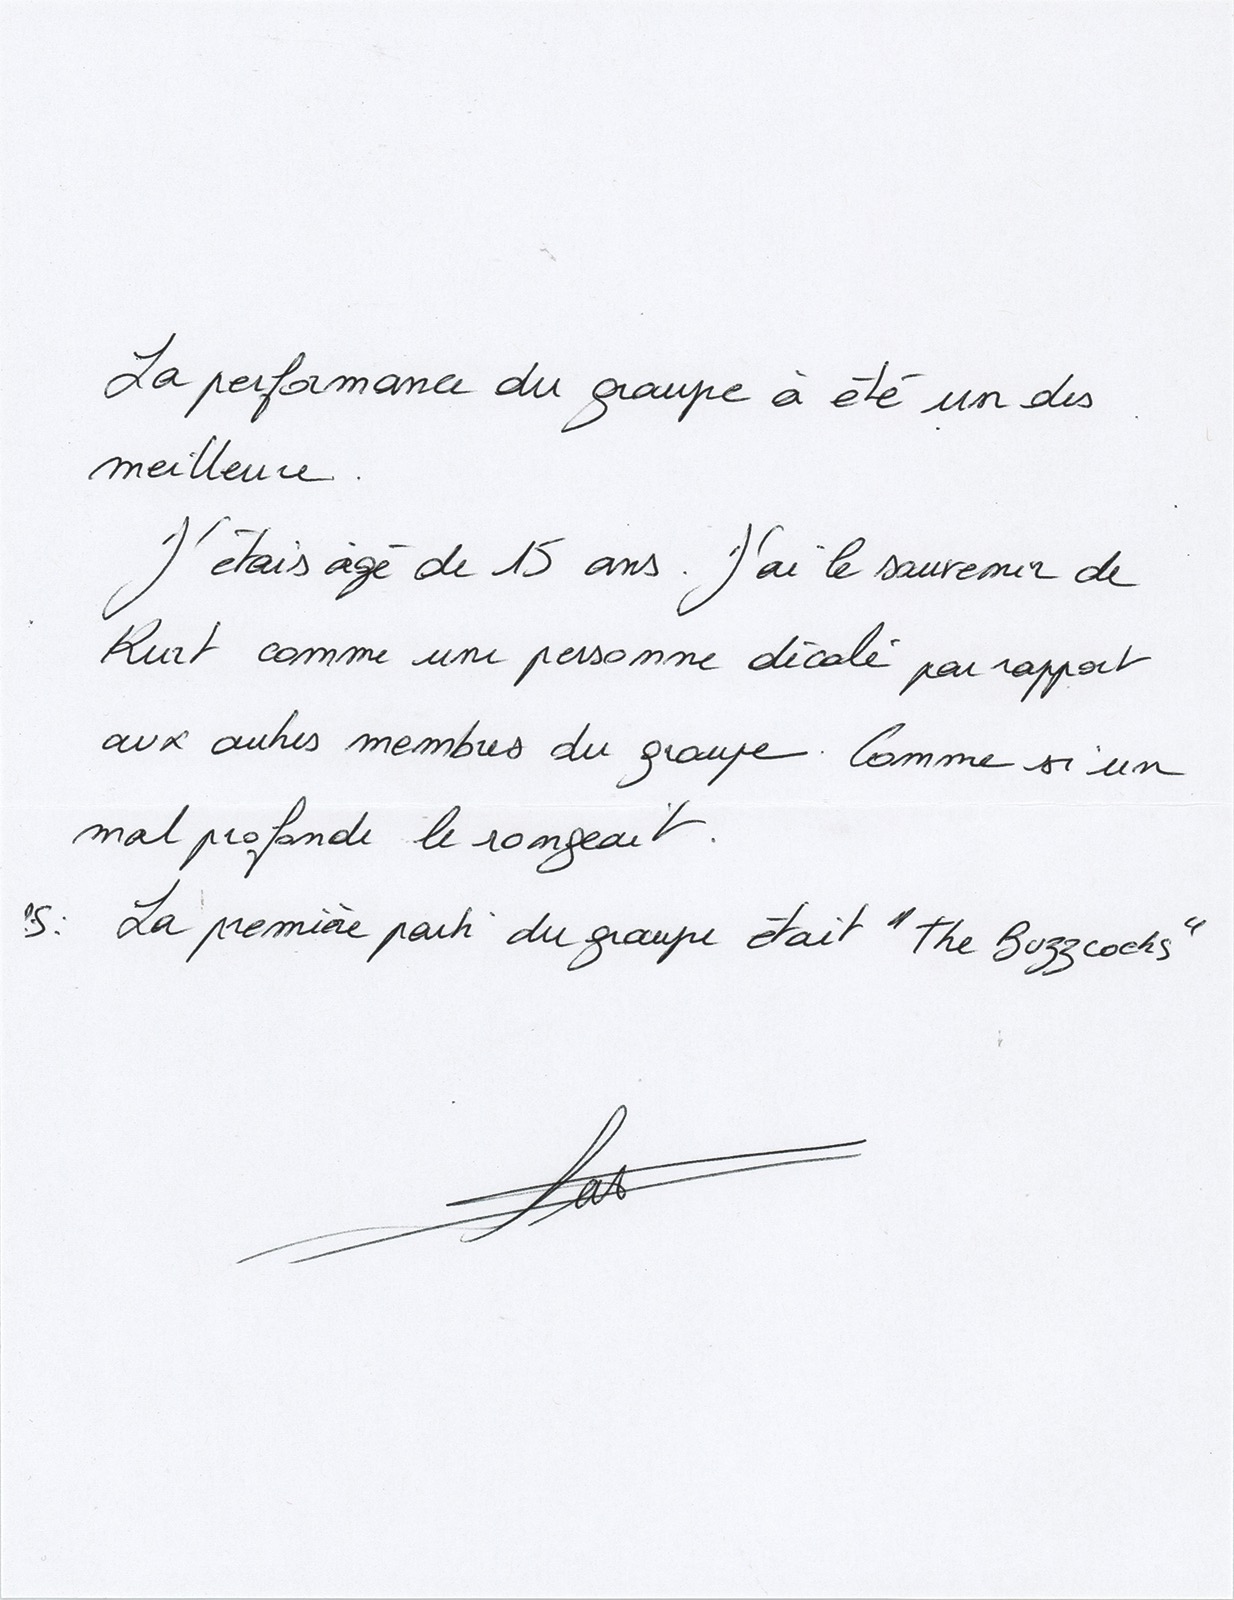 La performance du groupe à été un des
meilleure.
J'étais âgé de 15 ans. J'ai le souvenir de
Kurt comme une personne décalé par rapport
aux autres membres du groupe. Comme si un
mal profonde le rongeait.
PS: La première parti du groupe était "The Buzzcocks"